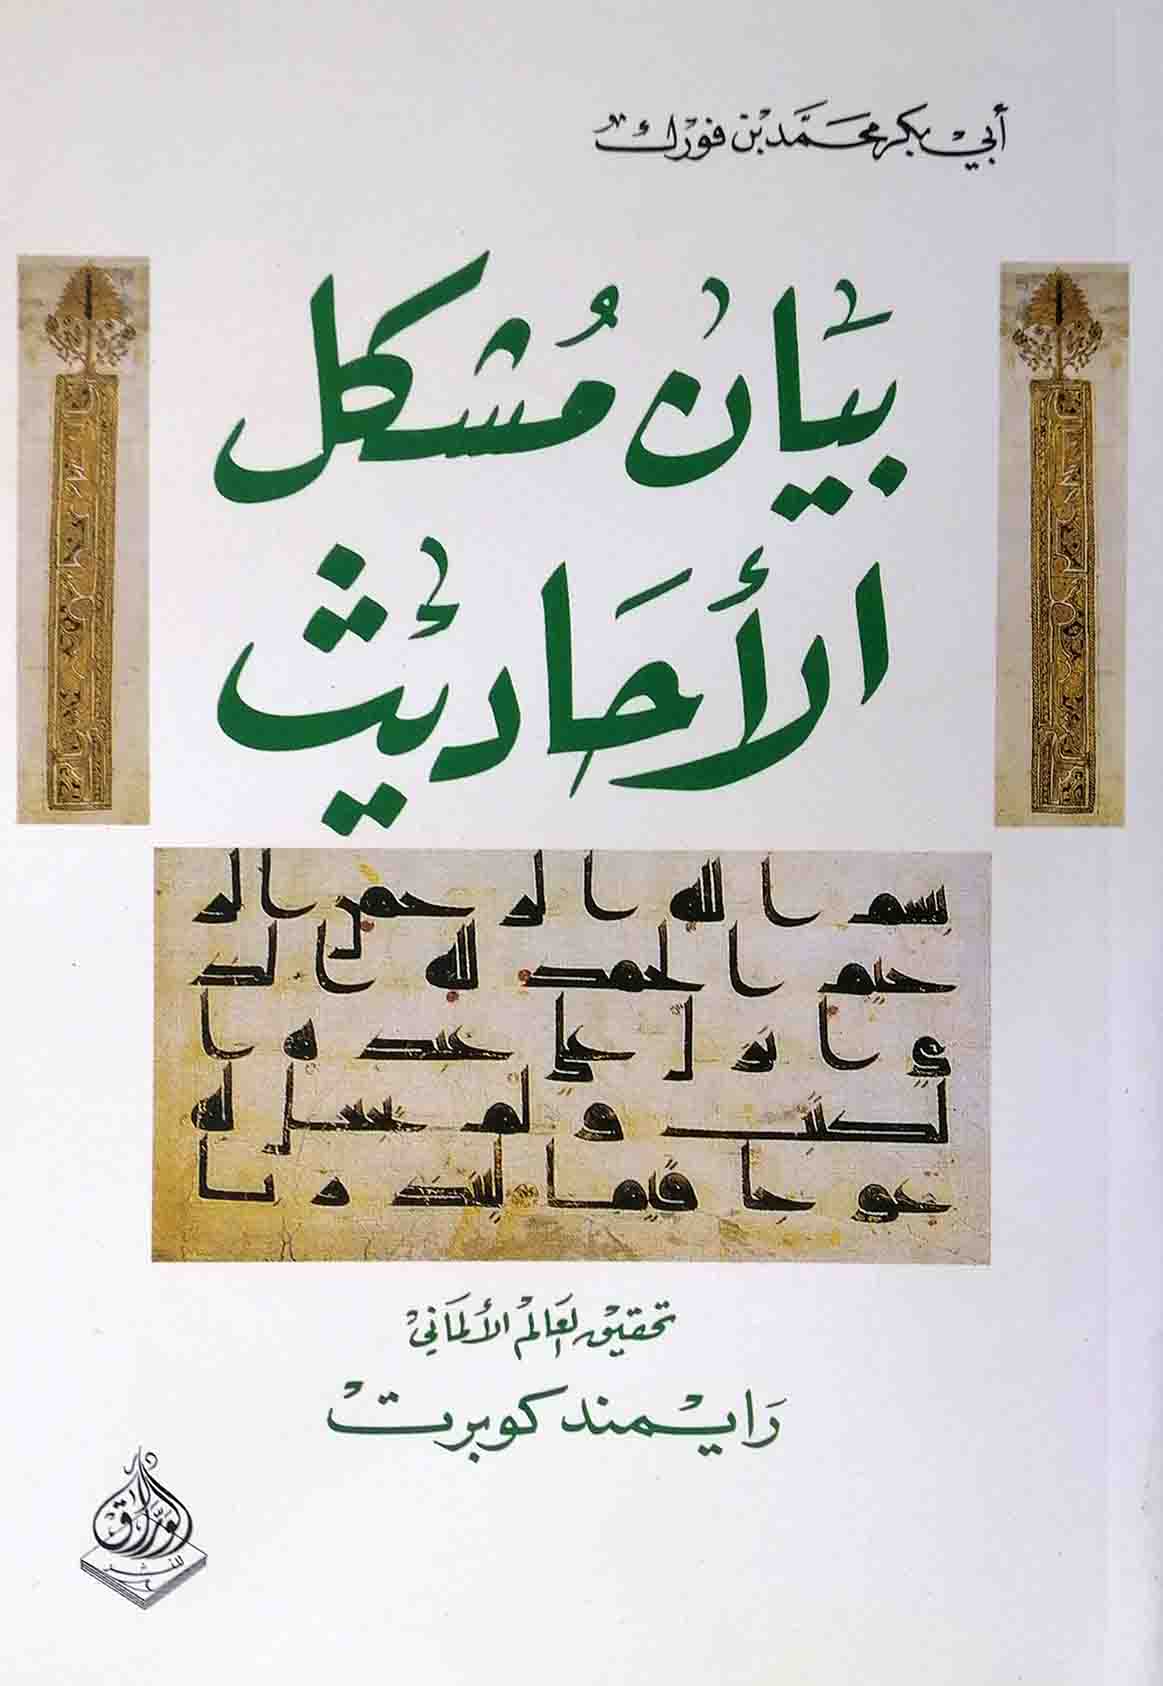 أبي بكر محمَّد بن فورك
بَيَان مُشكل
الأحَاديث
بسم الله الر حمں الر
حيم الحمد لله الد
ي ا نزل علی عبده ا
لكتب ولم يجعل له
عو جا قيما لينذر با
تحقيق العَالم الألمَاني
رَايمند كوبرت
الورّاق
للنشر